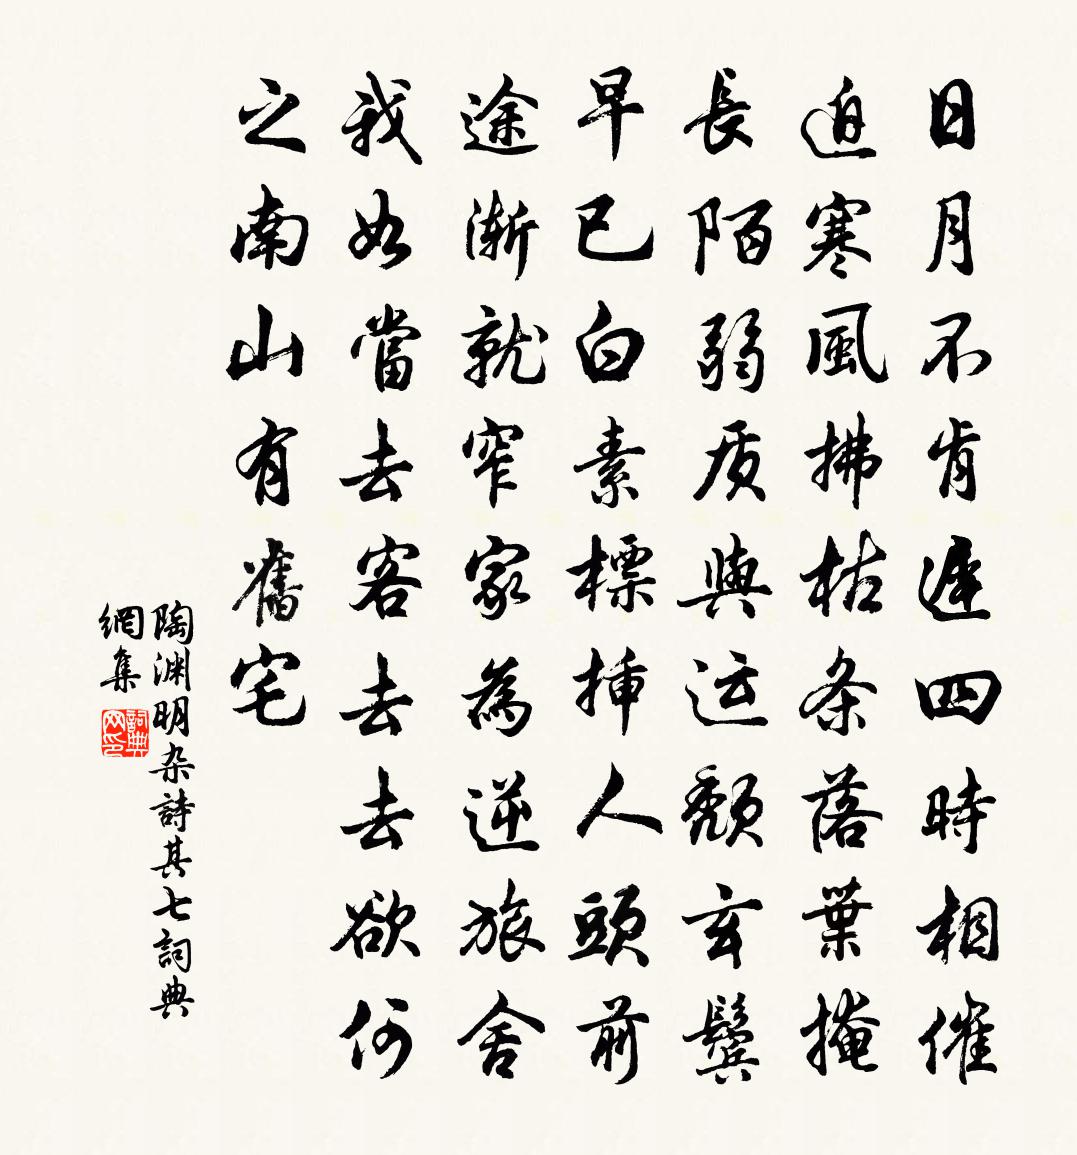 日月不肯遲四時相催
迫寒風拂枯条落葉掩
長陌弱质與运頽玄鬢
早已白素標插人頭前
途漸就窄家為逆旅舍
我如當去客去去欲何
之南山有舊宅
陶渊明杂詩其七詞典
網集
詞典
网印